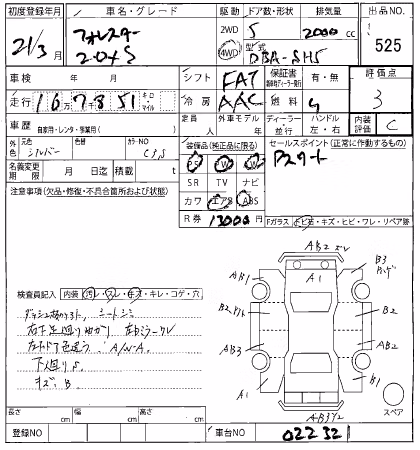 初度登録年月 車名・グレード 駆動 ドア数・形状 排気量 出品NO.
21/3月 フォレスター 2WD 5 2000cc 525
2.0XS 4WD 型式 DBA-SH5
車検 年 月 シフト FAT 保証書 有・無 評価点
走行 16万7851 キロ マイル 冷房 AAC 燃料 3
車歴 自家用・レンタ・事業用( ) 定員 人 外車モデル 年 ディーラー 並行 ハンドル 左・右 内装評価 C
外色 元色 シルバー 色替 カラーNO 装備品(純正品に限る) セールスポイント(正常に作動するもの)
名義変更期限 月 日 積載 t PS PW AW Pスタート
月迄 SR TV ナビ
注意事項(欠品・修復・不具合箇所および状態) カワ エアB ABS
R券 13000円 Fガラス とび石・キズ・ヒビ・ワレ・リペア跡
AB2
AB1 A1 B3
B2 B2
検査員記入 内装 汚レ・スレ・キズ・キレ・コゲ・穴
シートシミ
AB3 AB2
左ドア色違う A/W-A
下廻りS
キズ、B A1 B1
スペア
長さ cm 幅 cm 高さ cm
登録NO 車台NO 022321